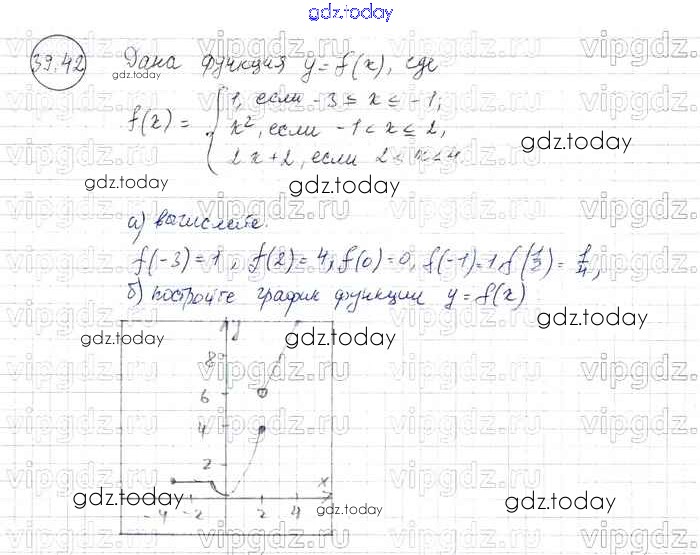 gdz.today
39.42 Дана функция y=f(x), где
f(x) = { 1, если -3 ≤ x ≤ -1,
x², если -1 < x ≤ 2,
2x+2, если 2 < x ≤ 4
а) вычислите.
f(-3)=1, f(2)=4, f(0)=0, f(-1)=1, f(1/2)=1/4,
б) постройте график функции y=f(x)
y
8
6
4
2
x
-4 -2 2 4
gdz.today
gdz.today
gdz.today
gdz.today
gdz.today
gdz.today
gdz.today
gdz.today
gdz.today
gdz.today
vipgdz.ru
vipgdz.ru
vipgdz.ru